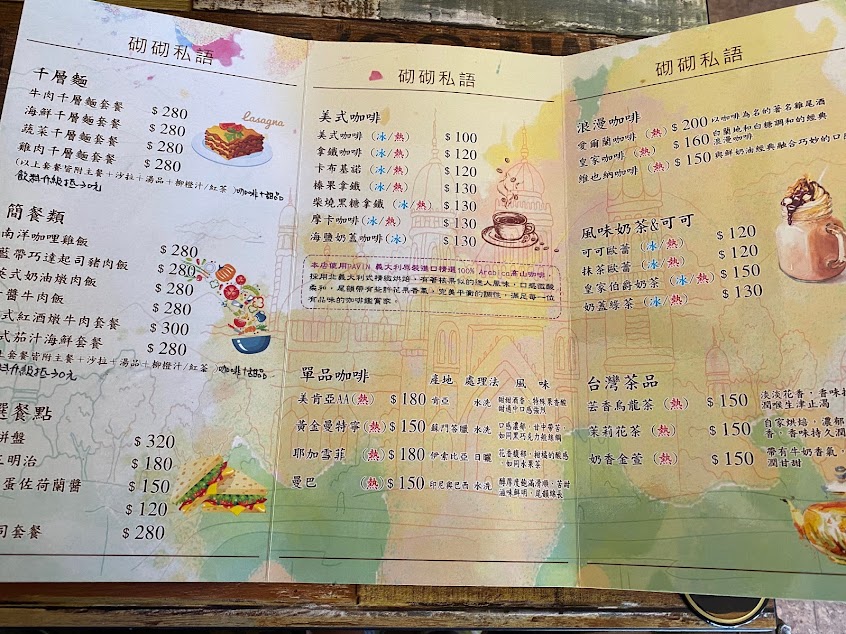 砌砌私語
千層麵
牛肉千層麵套餐 $280
海鮮千層麵套餐 $280
蔬菜千層麵套餐 $280
雞肉千層麵套餐 $280
Lasagna
(以上套餐皆附主餐+沙拉+湯品+柳橙汁/紅茶/咖啡+甜品
飲料升級抵30元
簡餐類
南洋咖哩雞飯 $280
藍帶巧達起司豬肉飯 $280
英式奶油燉肉飯 $280
醬牛肉飯 $280
式紅酒燉牛肉套餐 $300
式茄汁海鮮套餐 $280
套餐皆附主餐+沙拉+湯品+柳橙汁/紅茶/咖啡+甜品
料升級抵30元
餐點
拼盤 $320
三明治 $180
蛋佐荷蘭醬 $150
$120
司套餐 $280
砌砌私語
美式咖啡
美式咖啡(冰/熱) $100
拿鐵咖啡(冰/熱) $120
卡布基諾(冰/熱) $120
榛果拿鐵(冰/熱) $130
柴燒黑糖拿鐵(冰/熱) $130
摩卡咖啡(冰/熱) $130
海鹽奶蓋咖啡(冰) $130
本店使用DAVIN 義大利原裝進口精選100% Arabica高山咖啡,
採用北義大利式精緻烘焙,有著核果似的迷人風味,口感微酸
柔和,尾韻帶有些許花果香氣,完美平衡的調性,滿足每一位
有品味的咖啡鑑賞家。
單品咖啡 產地 處理法 風味
美肯亞AA(熱) $180 肯亞 水洗 甜甜酒香、特殊果香酸
甜適中口感強烈
黃金曼特寧(熱) $150 蘇門答臘 水洗 口感濃郁、甘中帶苦、
如同黑巧克力般絲綢
耶加雪菲(熱) $180 伊索比亞 日曬 花香馥郁、柑橘的酸感
、如同水果茶
曼巴(熱) $150 印尼與巴西 水洗 醇厚度飽滿滑順、苦甜
滋味鮮明、尾韻綿長
砌砌私語
浪漫咖啡
愛爾蘭咖啡(熱) $200 以咖啡為名的著名雞尾酒
皇家咖啡(熱) $160 白蘭地和白糖調和的經典
浪漫咖啡
維也納咖啡(熱) $150 與鮮奶油經典融合巧妙的口
風味奶茶&可可
可可歐蕾(冰/熱) $120
抹茶歐蕾(冰/熱) $120
皇家伯爵奶茶(冰/熱) $150
奶蓋綠茶(冰/熱) $130
台灣茶品
芸香烏龍茶(熱) $150 淡淡花香,香味
潤喉生津止渴
茉莉花茶(熱) $150 自家烘焙,濃郁
香,香味持久潤
奶香金萱(熱) $150 帶有牛奶香氣,
潤甘甜